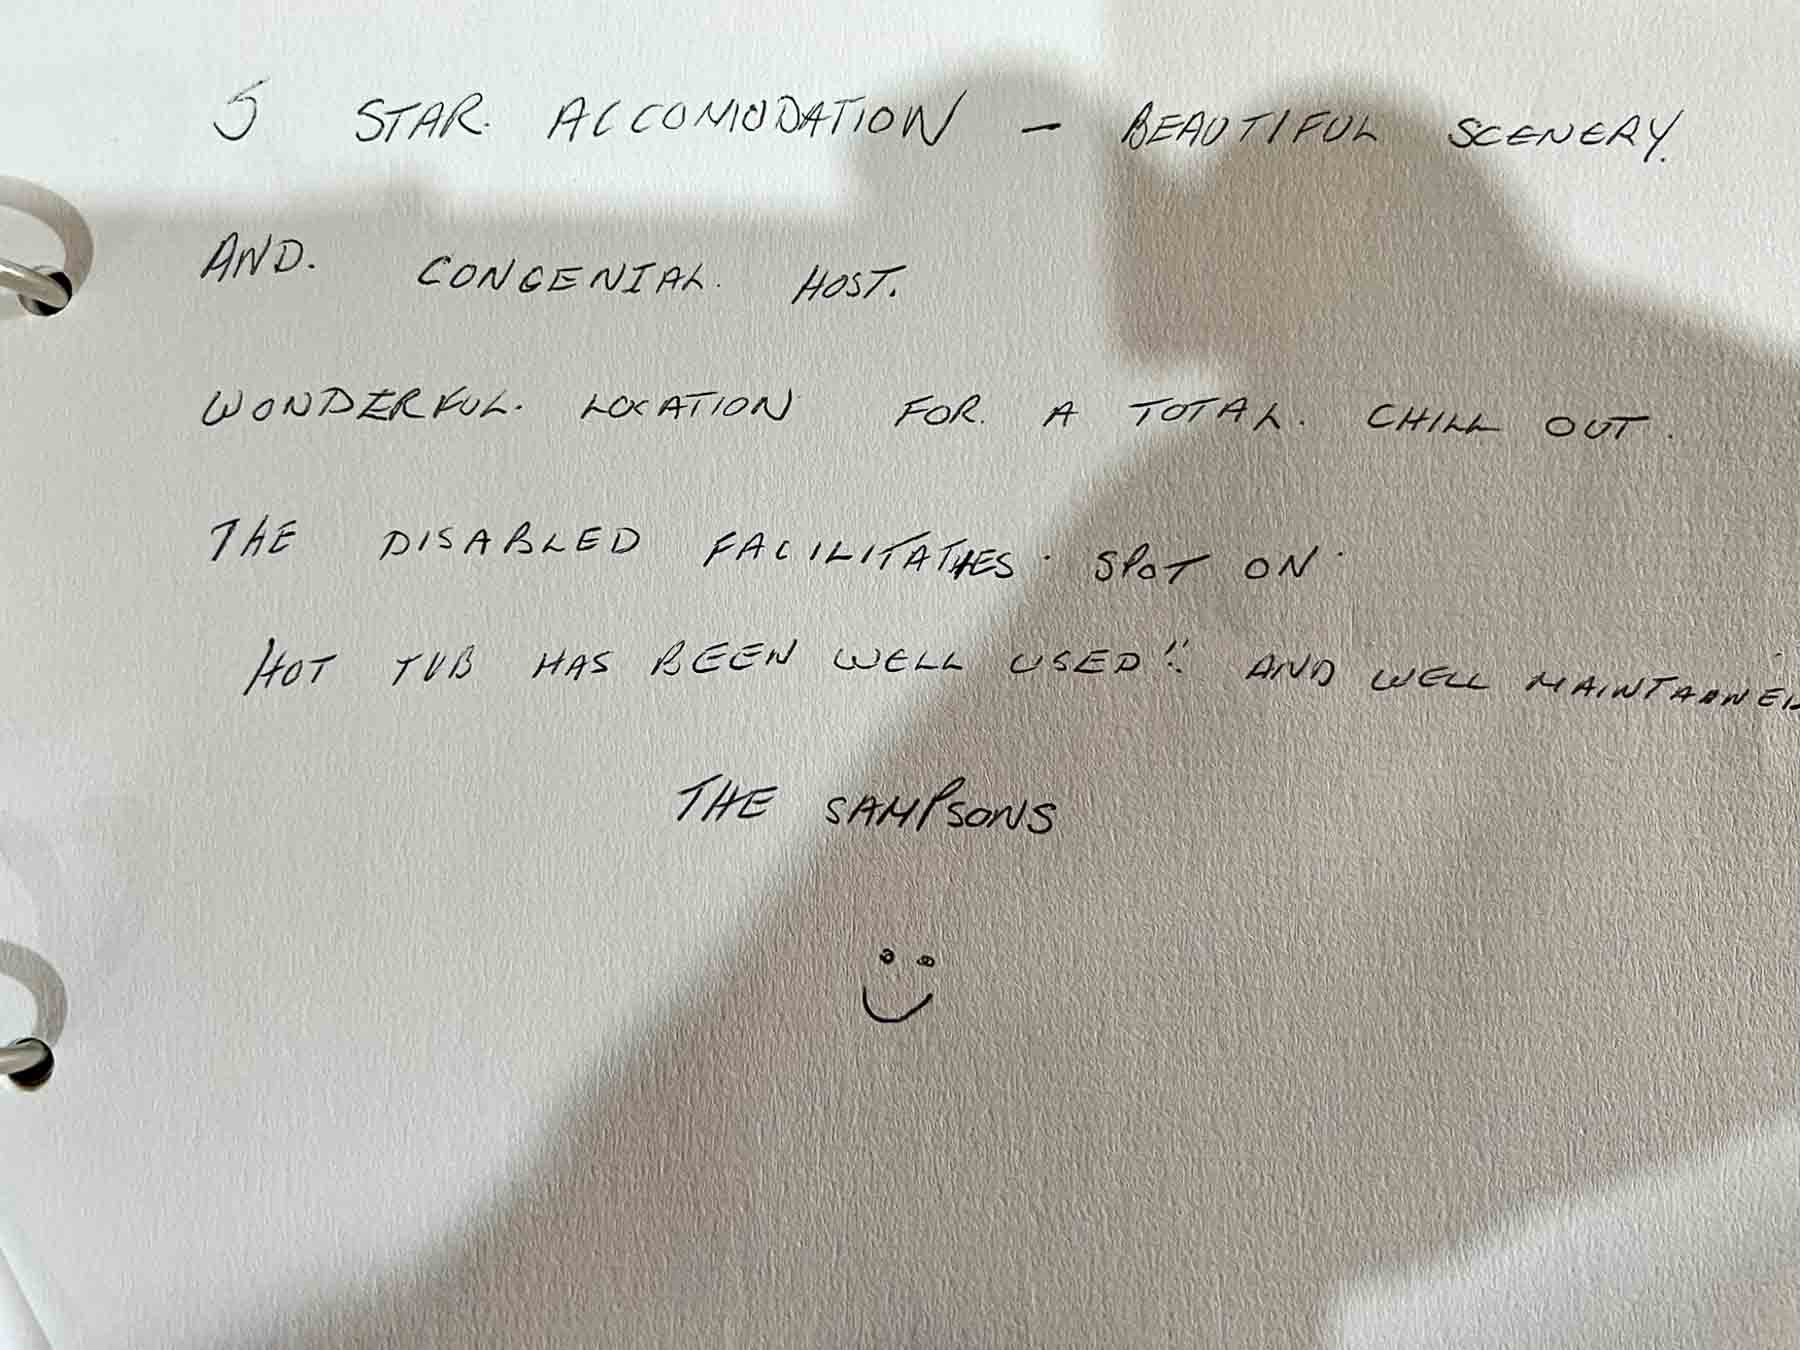 5 STAR. ACCOMODATION - BEAUTIFUL SCENERY.
AND. CONGENIAL. HOST.
WONDERFUL. LOCATION FOR. A TOTAL. CHILL OUT.
THE DISABLED FACILITATIES. SPOT ON.
HOT TUB HAS BEEN WELL USED!! AND WELL MAINTAINED
THE SAMPSONS